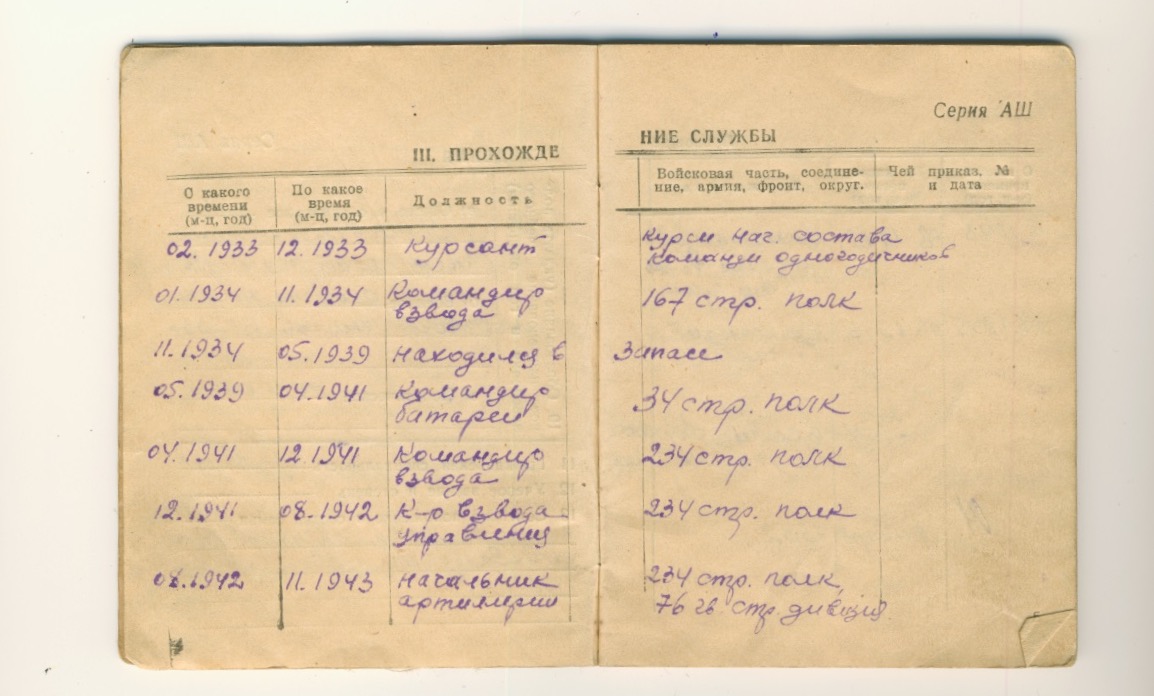 Серия АШ
III. ПРОХОЖДЕ
НИЕ СЛУЖБЫ
С какого времени (м-ц, год)
По какое время (м-ц, год)
Должность
Войсковая часть, соедине-
ние, армия, фронт, округ.
Чей приказ, №
и дата
02. 1933 12. 1933 Курсант Курсы нач. состава
команды одногодичников
01. 1934 11. 1934 Командир 167 стр. полк
взвода
11. 1934 05. 1939 находился в запасе
05. 1939 04. 1941 Командир 34 стр. полк
батареи
04. 1941 12. 1941 Командир 234 стр. полк
взвода
12. 1941 08. 1942 К-р взвода 234 стр. полк
управления
08. 1942 11. 1943 начальник 234 стр. полк,
артиллерии 76 гв. стр. дивизия